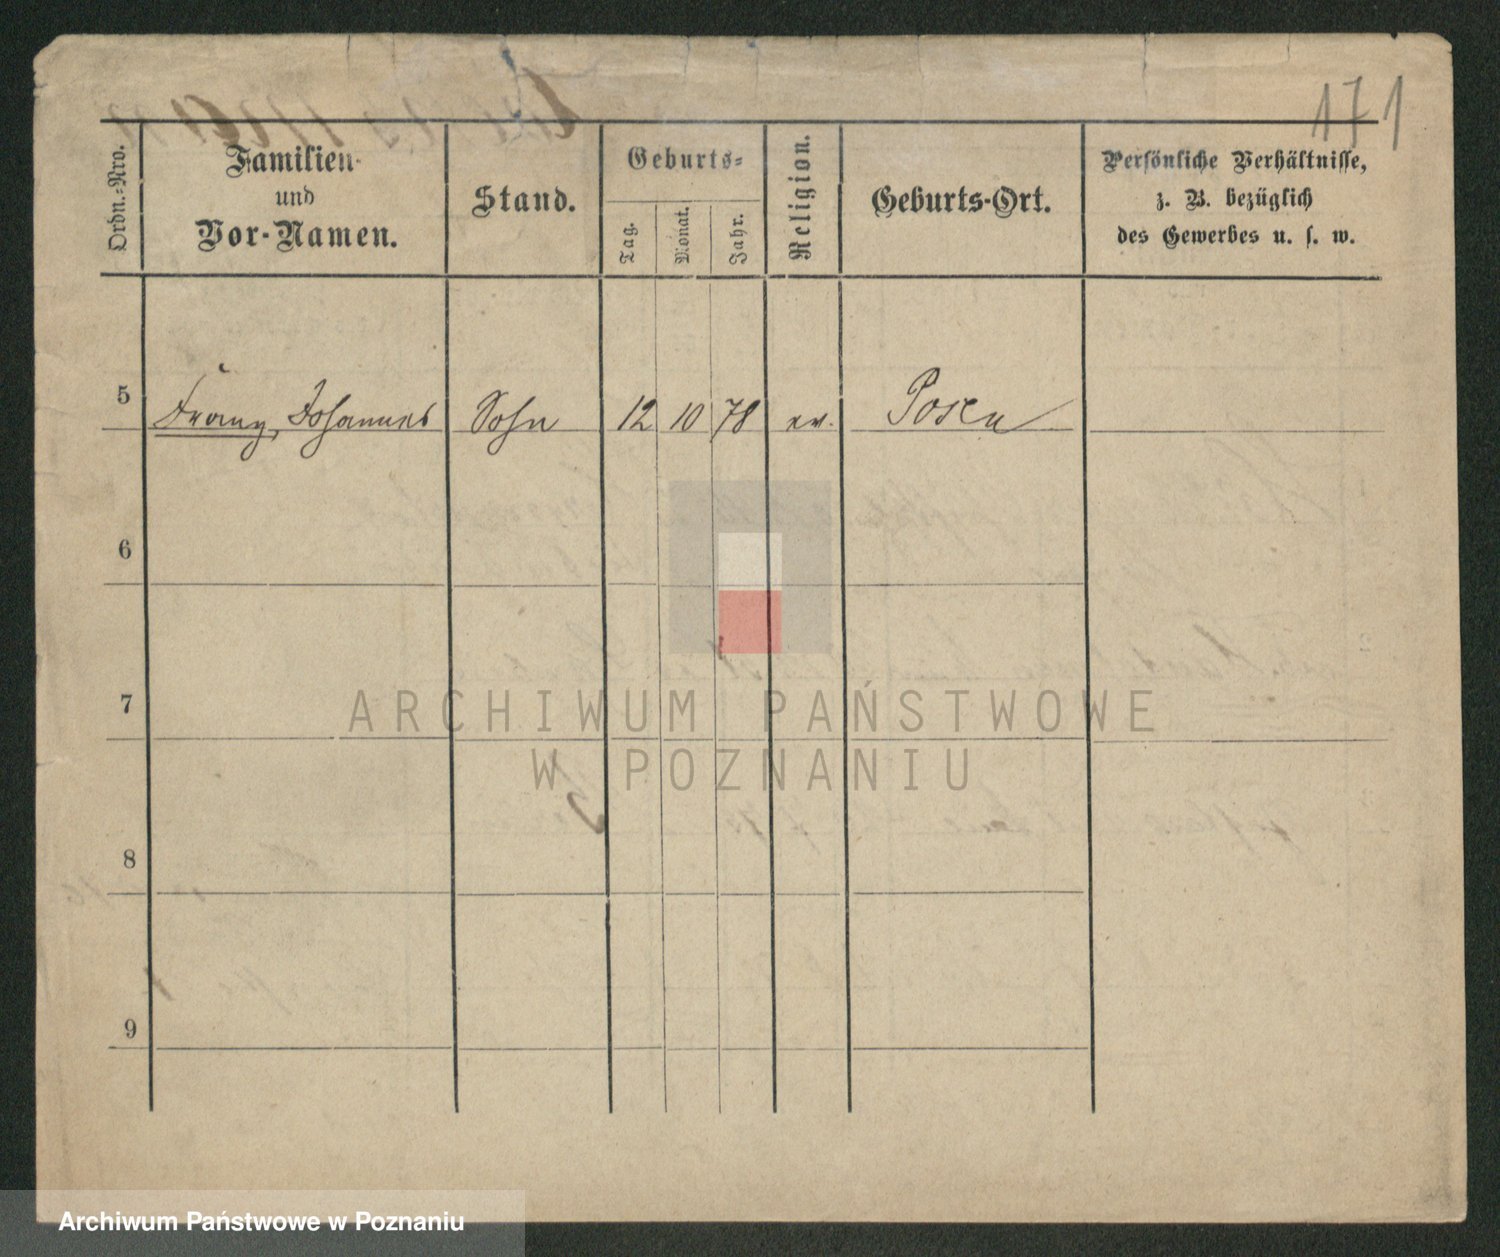 171
Ordn.-Nro.
Familien-
und
Vor-Namen.
Stand.
Geburts-
Tag.
Monat.
Jahr.
Religion.
Geburts-Ort.
Persönliche Verhältnisse,
z. B. bezüglich
des Gewerbes u. s. w.
5 Franz, Johannes Sohn 12 10 78 ev. Posen
6
7
8
9
ARCHIWUM PAŃSTWOWE
W POZNANIU
Archiwum Państwowe w Poznaniu